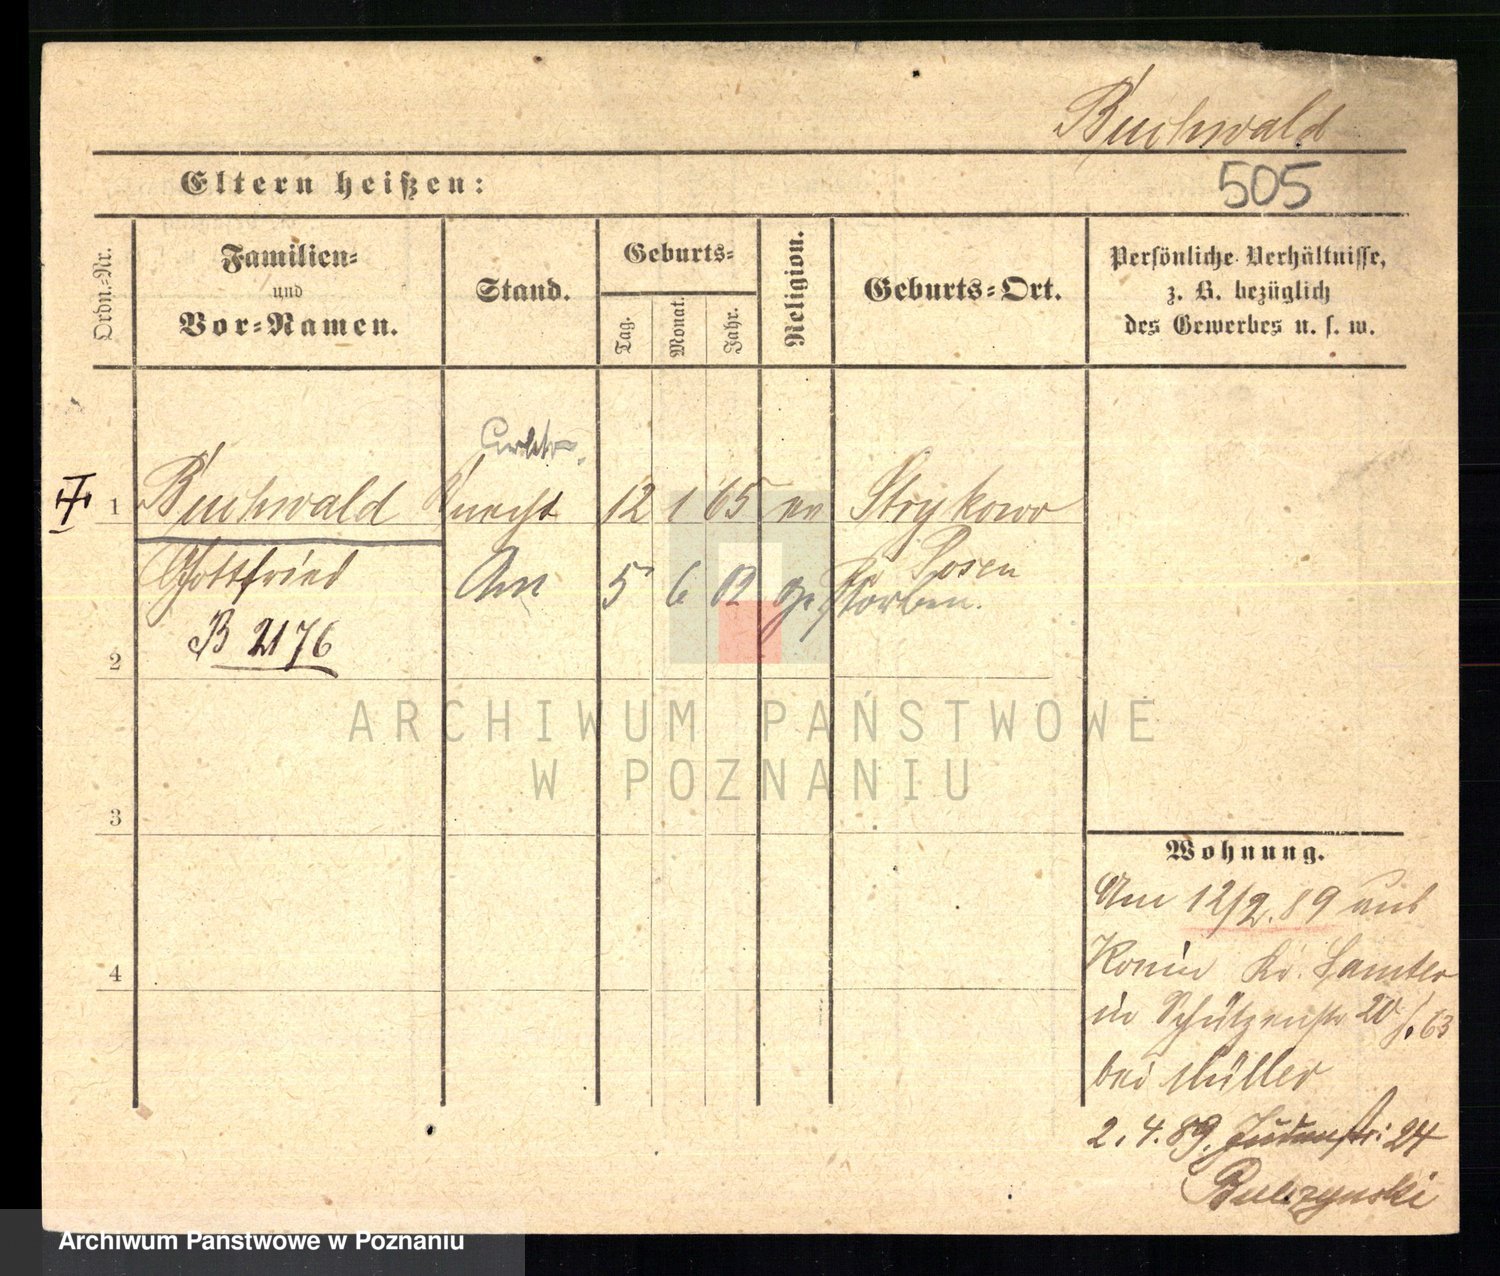 Buchwald
505
Eltern heißen:
Ordn.-Nr.
Familien-
und
Vor-Namen.
Stand.
Geburts-
Tag.
Monat.
Jahr.
Religion.
Geburts-Ort.
Persönliche Verhältnisse,
z. B. bezüglich
des Gewerbes u. s. w.
Arbtr.
1 Buchwald Knecht 12 1 65 ev Strykowo
Gottfried Posen
Am 5 6 02 gestorben.
B 2176
2
3
4
ARCHIWUM PAŃSTWOWE
W POZNANIU
Wohnung.
Am 12/2. 89 aus
Konin Kr. Samter
in Schützenstr 20 /. 63
bei Müller
2. 4. 89. Judenstr: 24
Archiwum Państwowe w Poznaniu